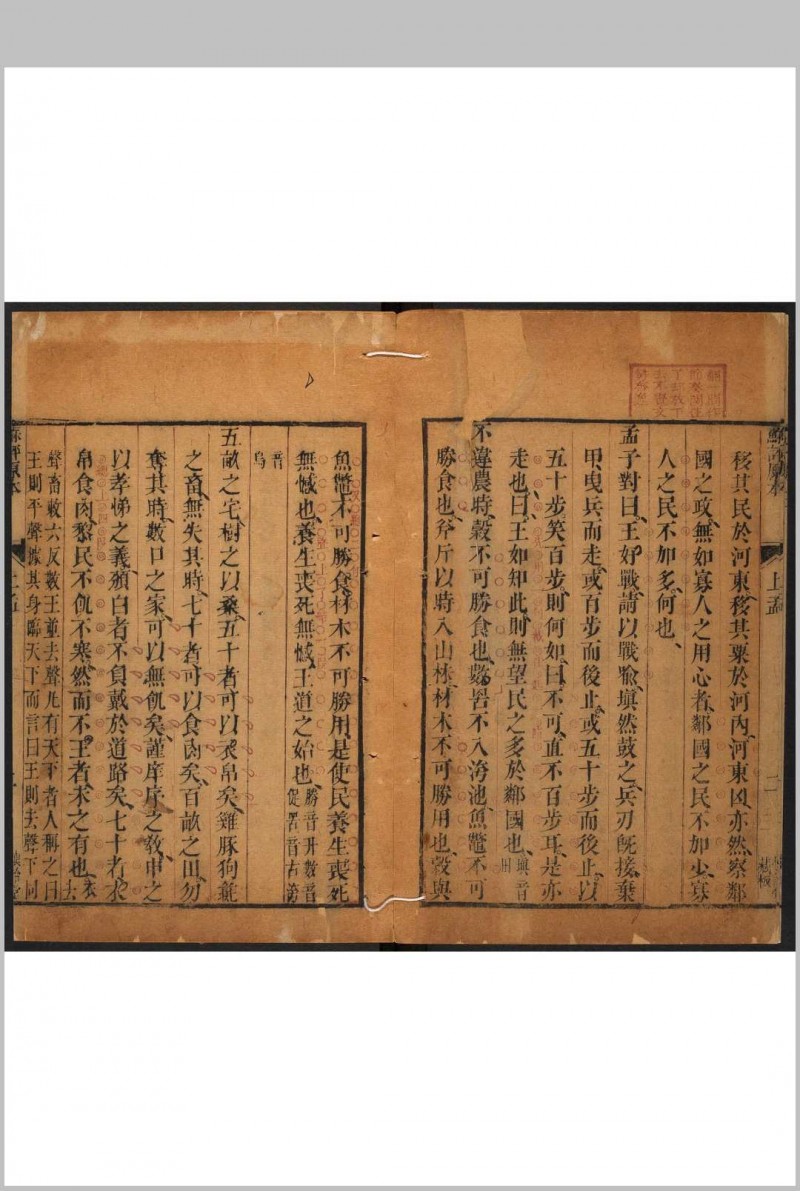 移其民於河東移其粟於河内河東凶亦然察鄰
國之政無如寡人之用心者鄰國之民不加少寡
人之民不加多何也
孟子對曰王好戰請以戰喻填然鼓之兵刃旣接棄
甲曳兵而走或百步而後止或五十步而後止以
五十步笑百步則何如曰不可直不百步耳是亦
走也曰王如知此則無望民之多於鄰國也
不違農時穀不可勝食也數罟不入洿池魚鼈不可
勝食也斧斤以時入山林材木不可勝用也穀與
魚鼈不可勝食材木不可勝用是使民養生喪死
無憾也養生喪死無憾王道之始也勝音升數音
促罟音古洿
音烏
五畝之宅樹之以桑五十者可以衣帛矣雞豚狗彘
之畜無失其時七十者可以食肉矣百畝之田勿
奪其時數口之家可以無飢矣謹庠序之敎申之
以孝悌之義頒白者不負戴於道路矣七十者衣
帛食肉黎民不飢不寒然而不王者未之有也衣去
聲畜敕六反數王並去聲凡有天下者人稱之曰
王則平聲據其身臨天下而言曰王則去聲下同
上孟
二